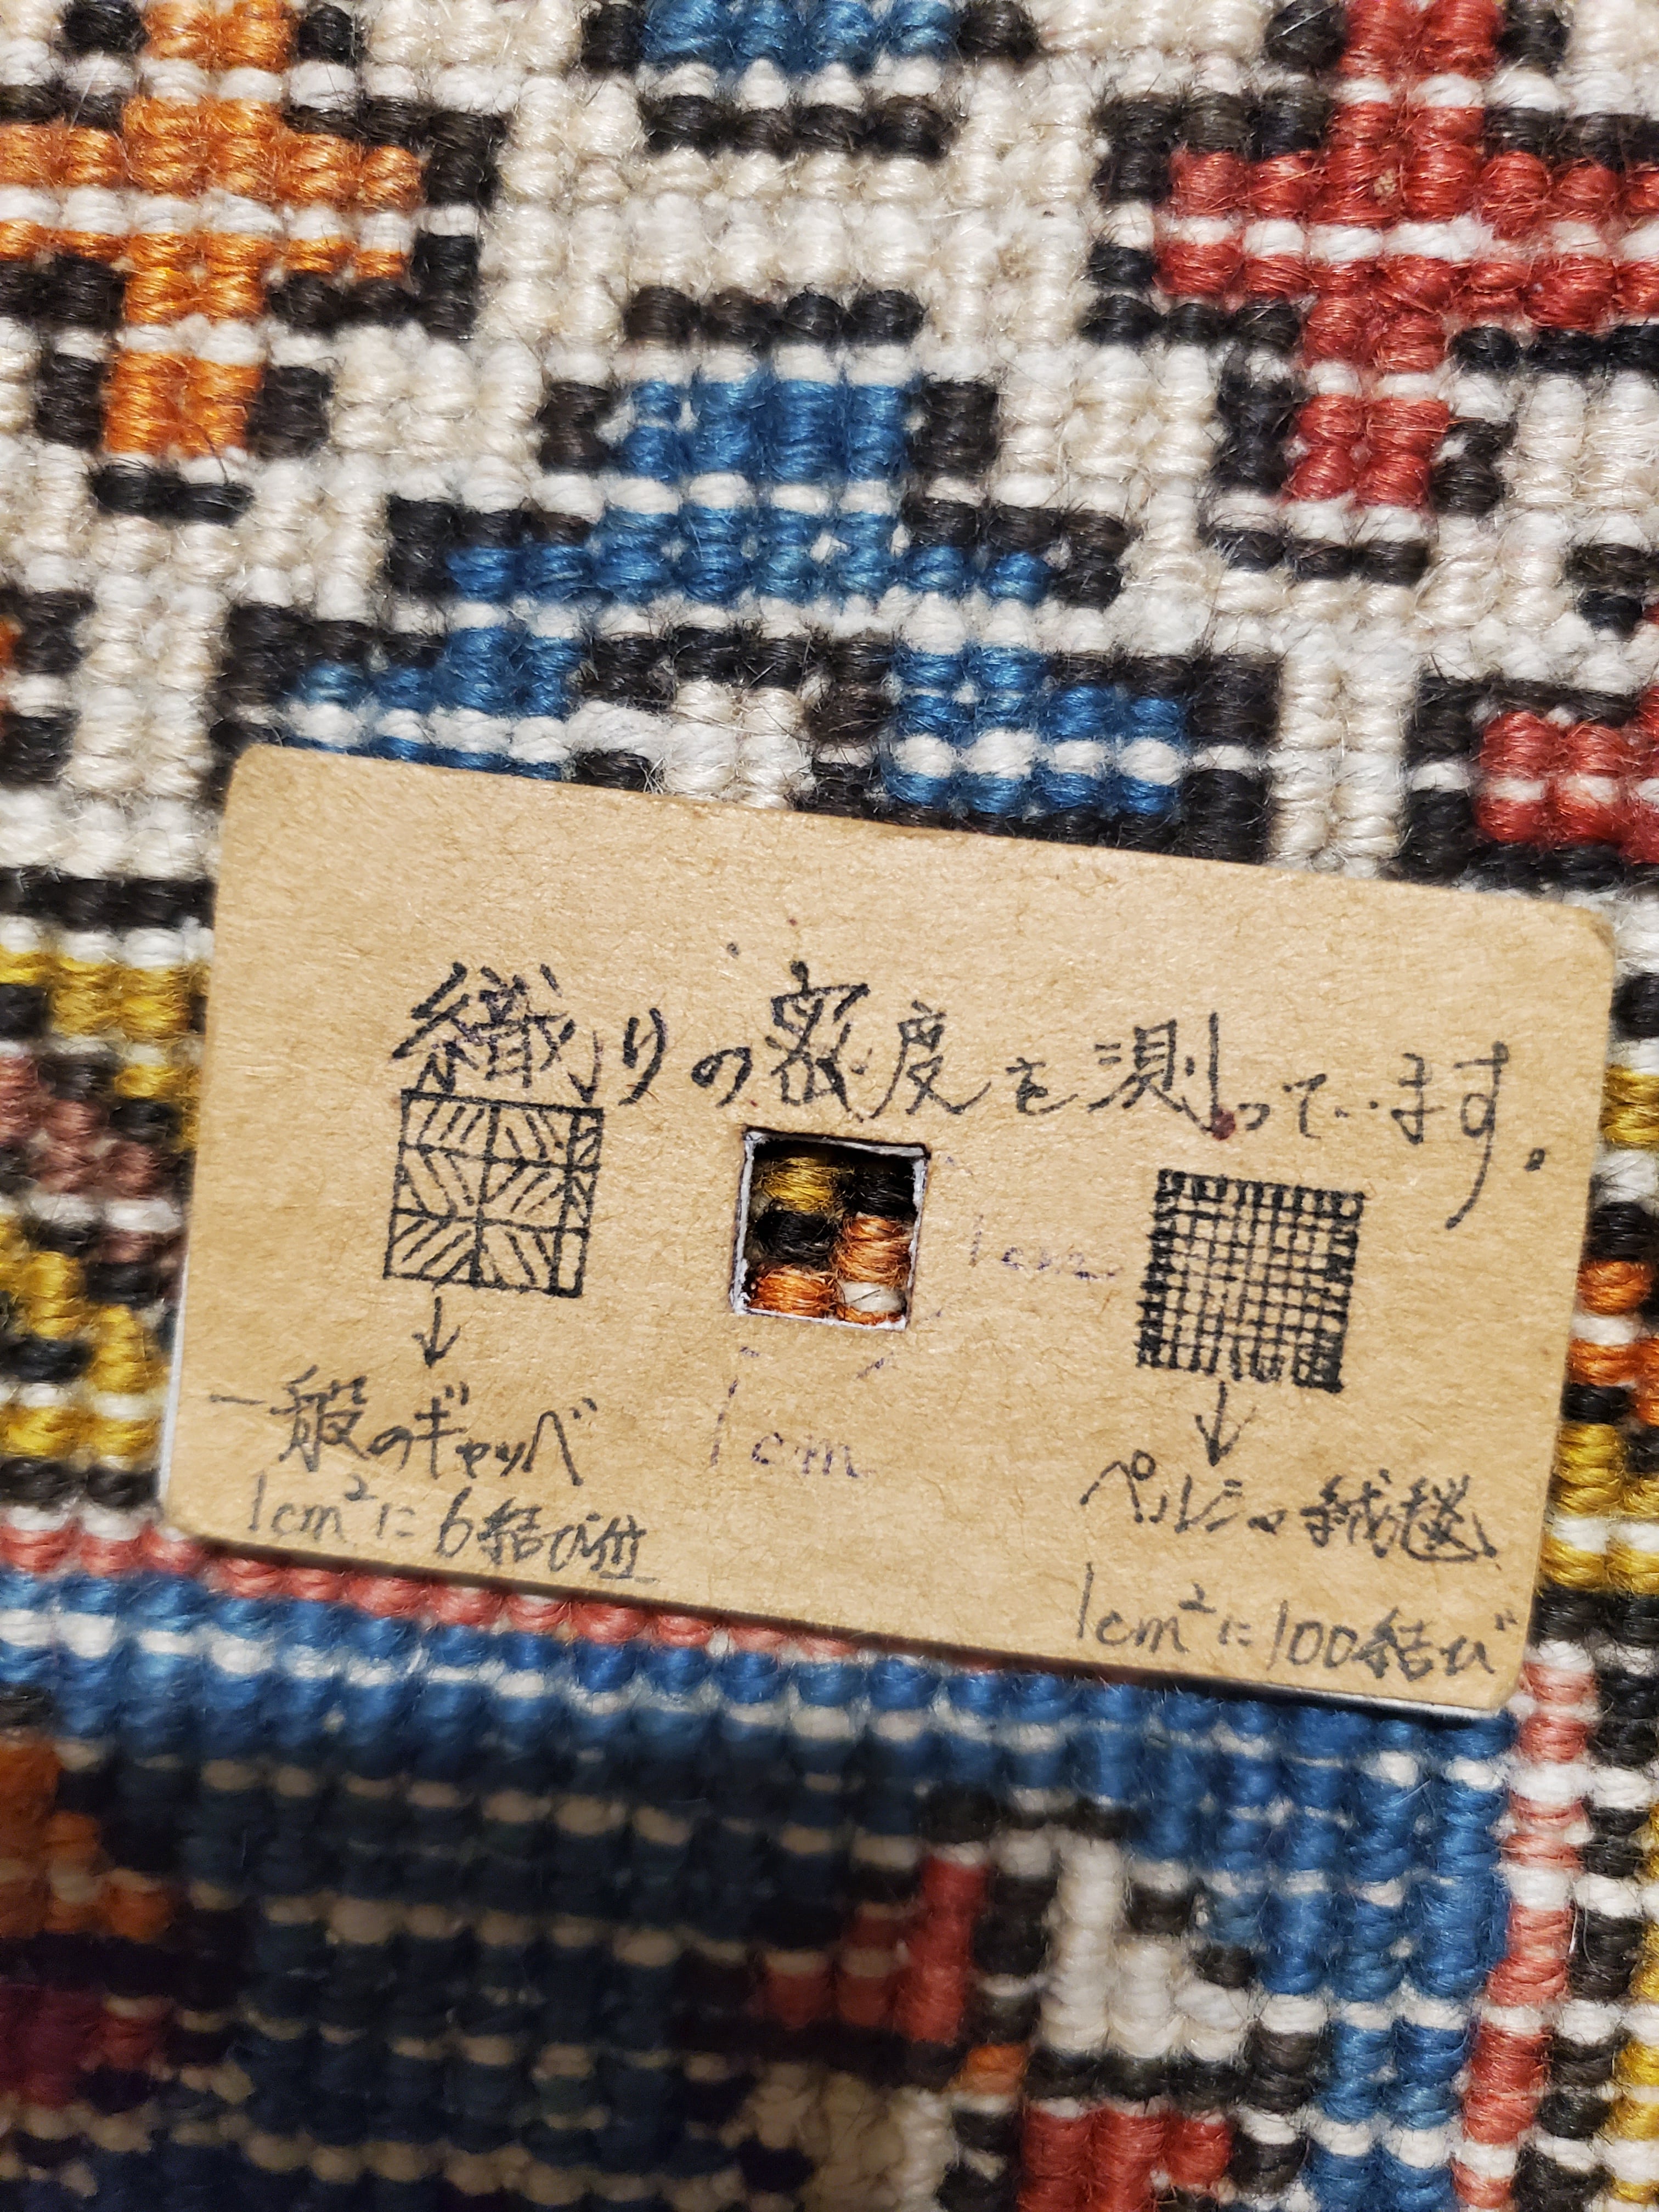 織りの密度を測っています。
1cm
1cm
一般のギャッベ
1cm²に6結び位
ペルシャ絨毯
1cm²に100結び